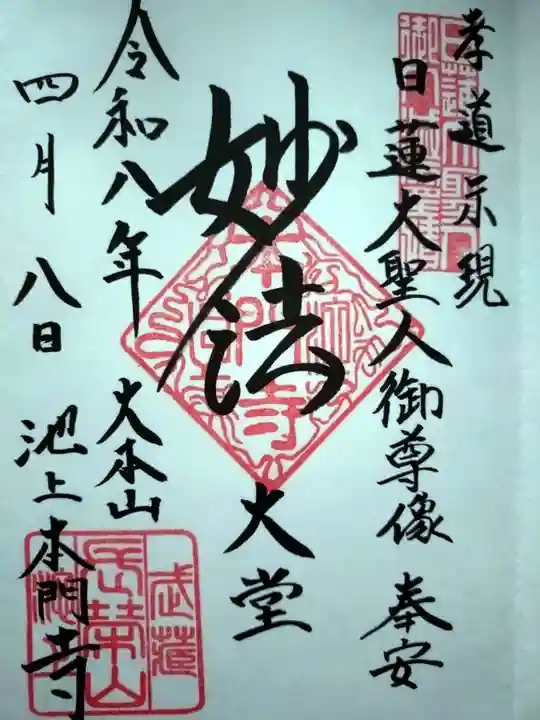 孝道示現
日蓮大聖人御尊像 奉安
妙法
大堂
令和八年 大本山
四月八日 池上本門寺
武蔵
長栄山